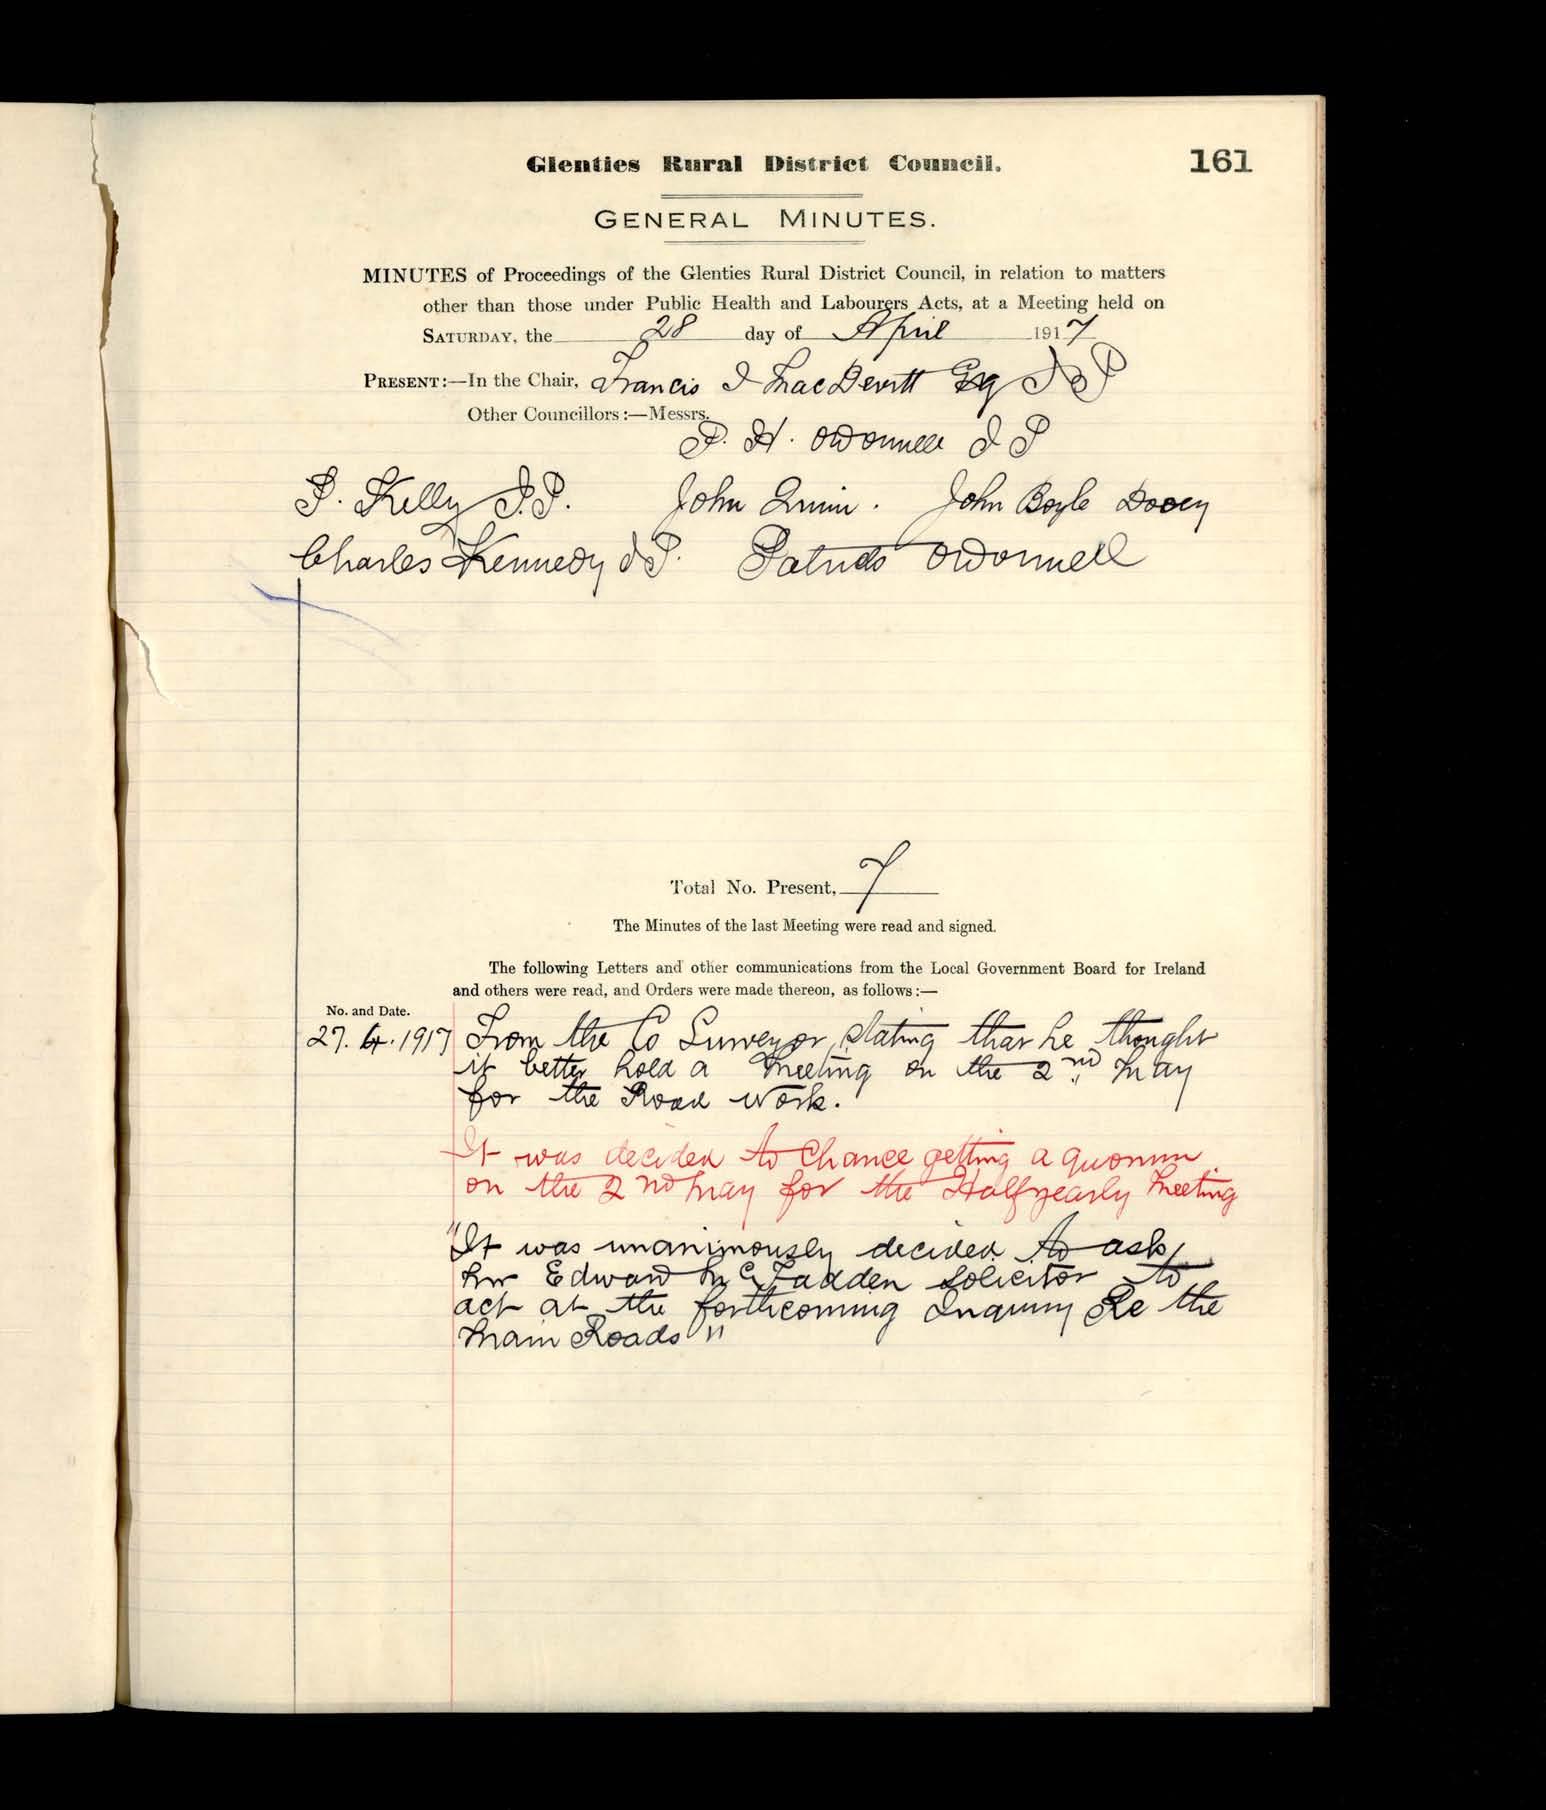 Glenties Rural District Council.
161
GENERAL MINUTES.
MINUTES of Proceedings of the Glenties Rural District Council, in relation to matters
other than those under Public Health and Labourers Acts, at a Meeting held on
SATURDAY, the 28 day of April 1917
PRESENT:—In the Chair, Francis I MacDevitt Esq J P
Other Councillors:—Messrs.
P. H. O'Donnell J P
P. Kelly J.P. John Quinn. John Boyle Dooey
Charles Kennedy J P. Patrick O'Donnell
Total No. Present, 7
The Minutes of the last Meeting were read and signed.
The following Letters and other communications from the Local Government Board for Ireland
and others were read, and Orders were made thereon, as follows:—
No. and Date.
27.4.1917 From the Co Surveyor, stating that he thought
it better hold a meeting on the 2nd May
for the Road work.
It was decided to chance getting a quorum
on the 2nd May for the Half yearly Meeting
"It was unanimously decided to ask
Mr Edward McFadden Solicitor to
act at the forthcoming Inquiry Re the
Main Roads"